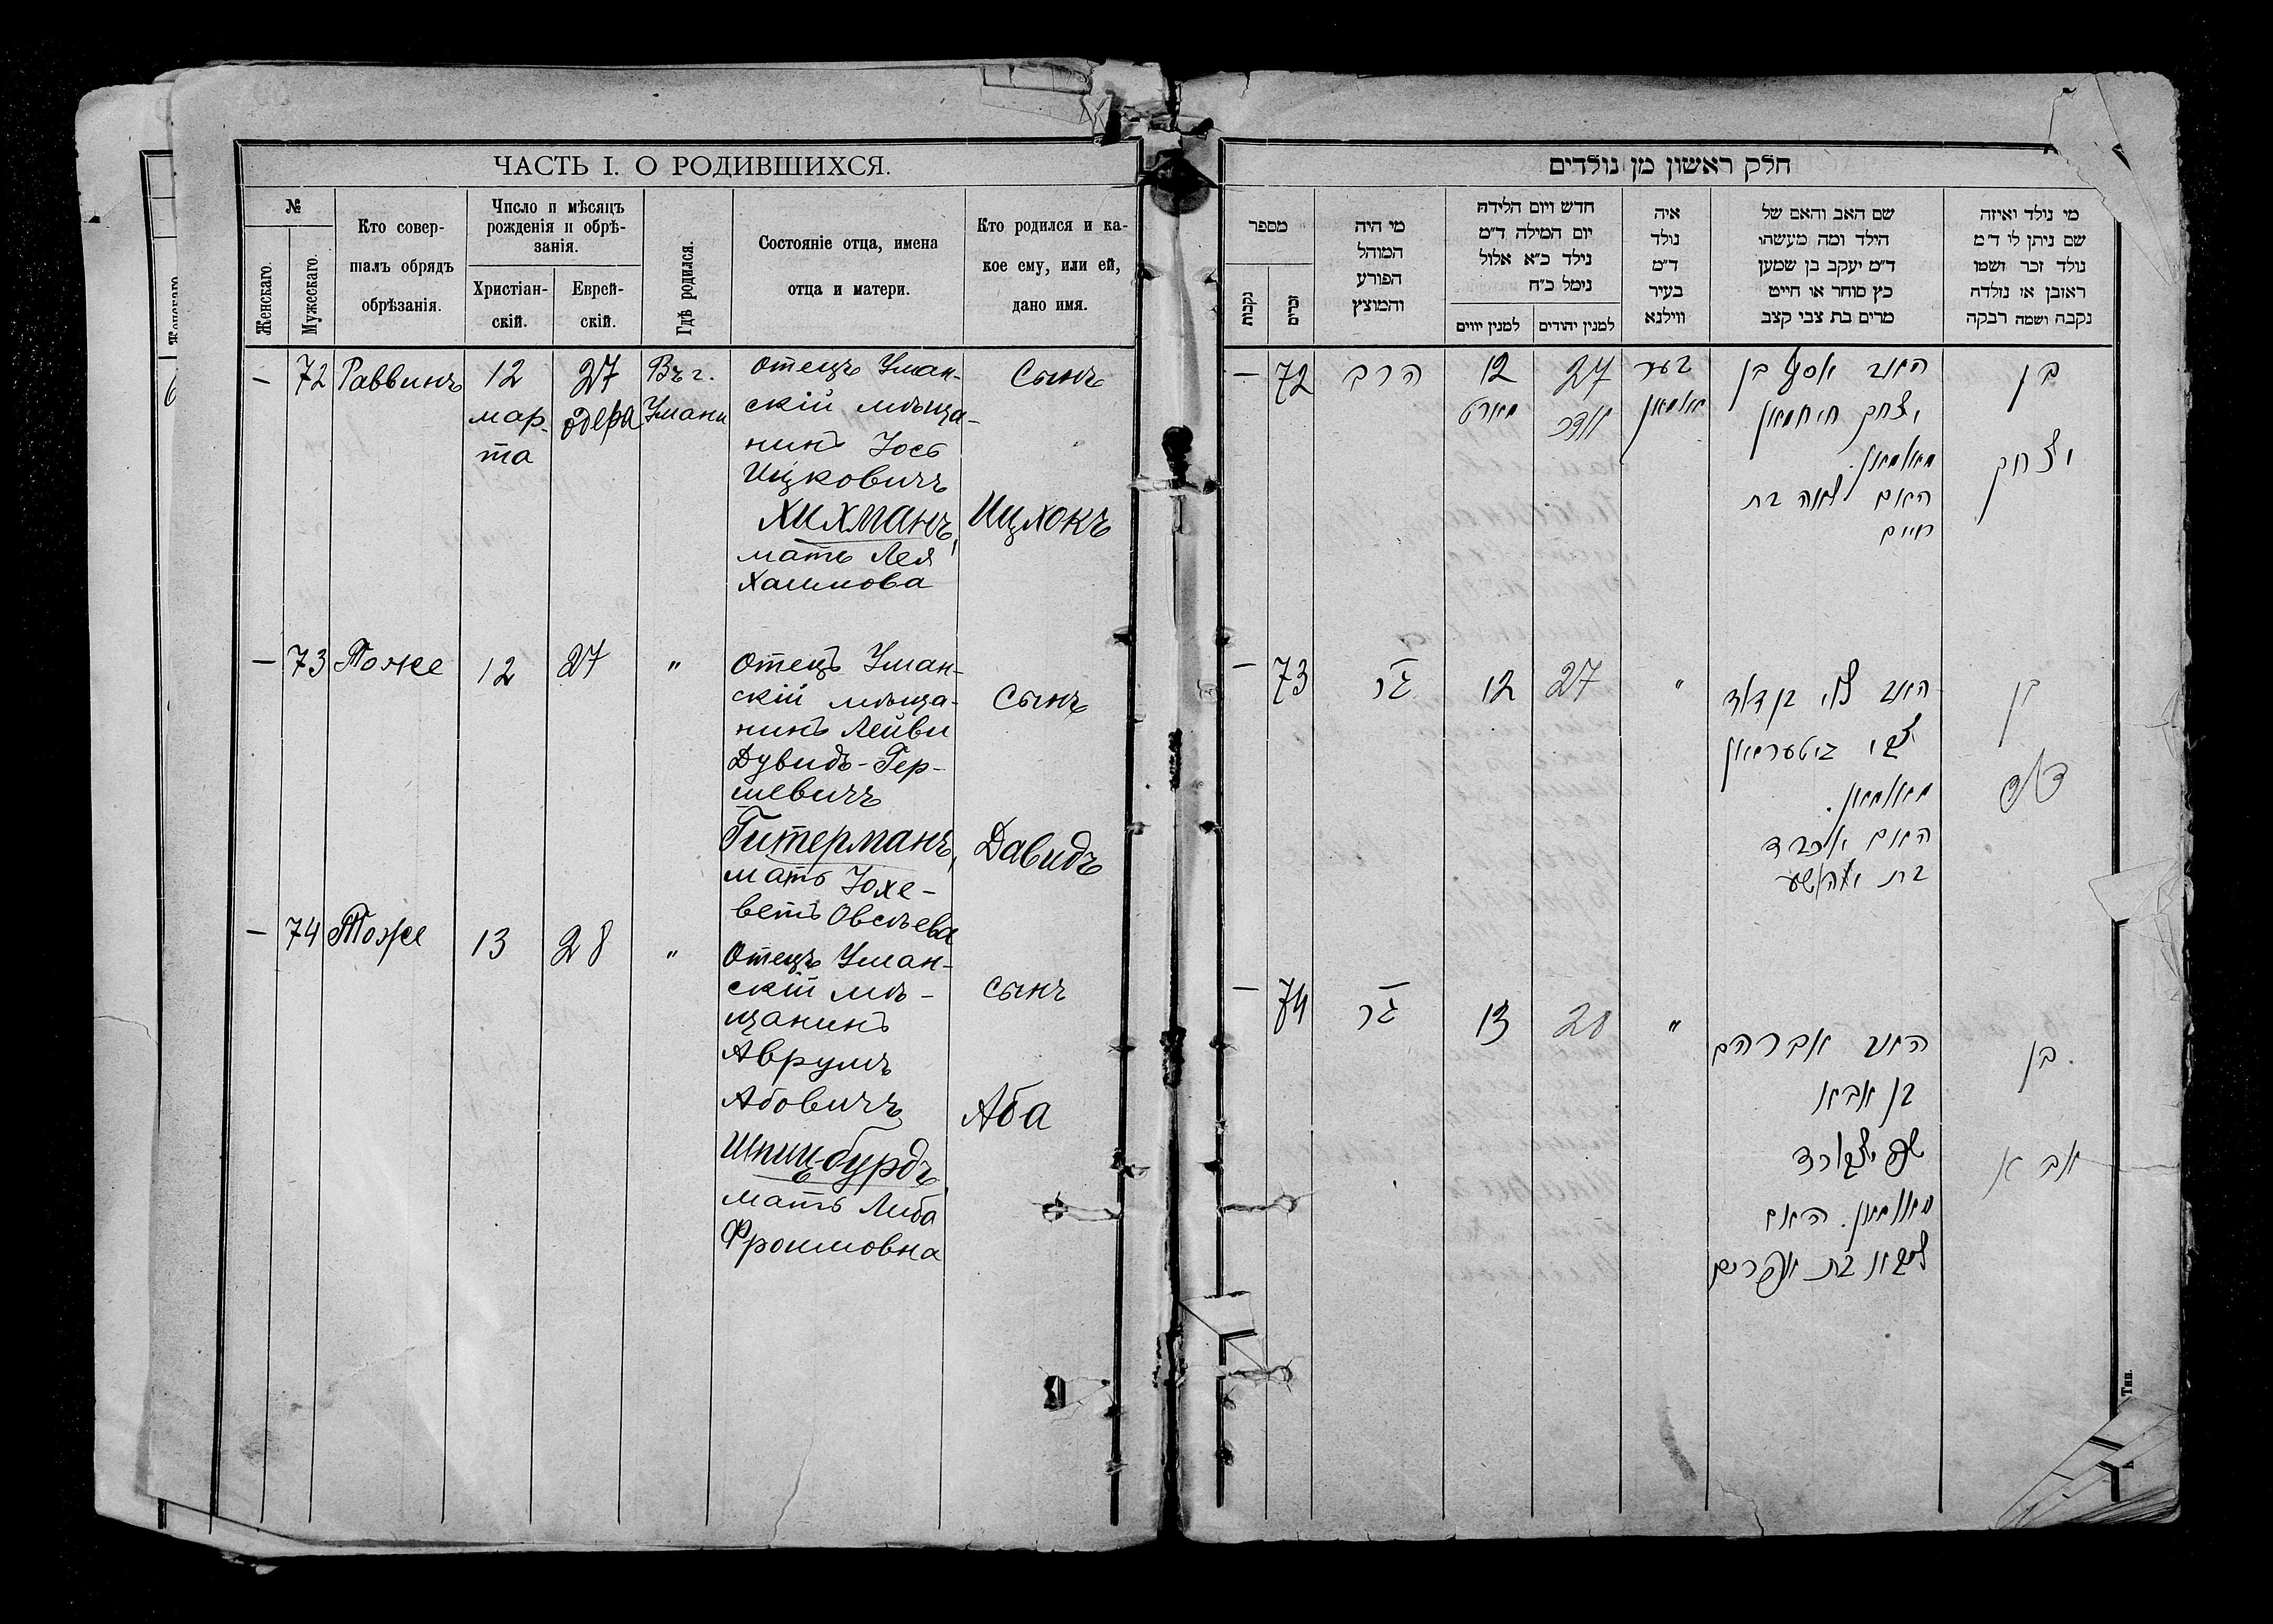 ЧАСТЬ I. О РОДИВШИХСЯ.
№
Женскаго.
Мужескаго.
Кто совер-
шалъ обрядъ
обрѣзанія.
Число и мѣсяцъ
рожденія и обрѣ-
занія.
Христіан-
скій.
Еврей-
скій.
Гдѣ родился.
Состояніе отца, имена
отца и матери.
Кто родился и ка-
кое ему, или ей,
дано имя.
— 72 Раввинъ 12 мар-
та
27 одера
Въ г.
Умани
отецъ Уман-
скій мѣща-
нинъ Іось
Ицковичъ
Хихманъ,
мать Лея
Хаимова
Сынъ
Ицхокъ
— 73 Тоже 12 27 "
Отецъ Уман-
скій мѣща-
нинъ Лейви
Дувидъ-Гер-
шевичъ
Гитерманъ,
мать Іохе-
ветъ Овсѣева
Сынъ
Давидъ
— 74 Тоже 13 28 "
Отецъ Уман-
скій мѣ-
щанинъ
Аврумъ
Абовичъ
Шпицбурдъ,
мать Либа
Фроимовна
сынъ
Аба
חלק ראשון מן נולדים
מי נולד ואיזה
שם ניתן לו ד״מ
נולד זכר ושמו
ראובן או נולדה
נקבה ושמה רבקה
שם האב והאם של
הילד ומה מעשהו
ד״מ יעקב בן שמעון
כץ סוחר או חייט
מרים בת צבי קצב
איה
נולד
ד״מ
בעיר
ווילנא
חדש ויום הלידה
יום המילה ד״מ
נילד כ״א אלול
נימל כ״ח
למנין יהודים
למנין יווים
מי היה
המוהל
הפורע
והמוצץ
מספר
זכרים
נקבות
בן
יצחק
האב יוסף בן
יצחק חיחמאן
מאומאן.
האם לאה בת
חיים
בער
אומאן
27
אדר
12
מארט
הרב
72 —
בן
דוד
האב לוי בן דוד
צבי גיטערמאן
מאומאן.
האם יוכבד
בת יהושע
"
27
12
גר
73 —
בן
אבא
האב אברהם
בן אבא
שפיצבורד
מאומאן. האם
ליבא בת אפרים
"
28
13
גר
74 —
Тип.